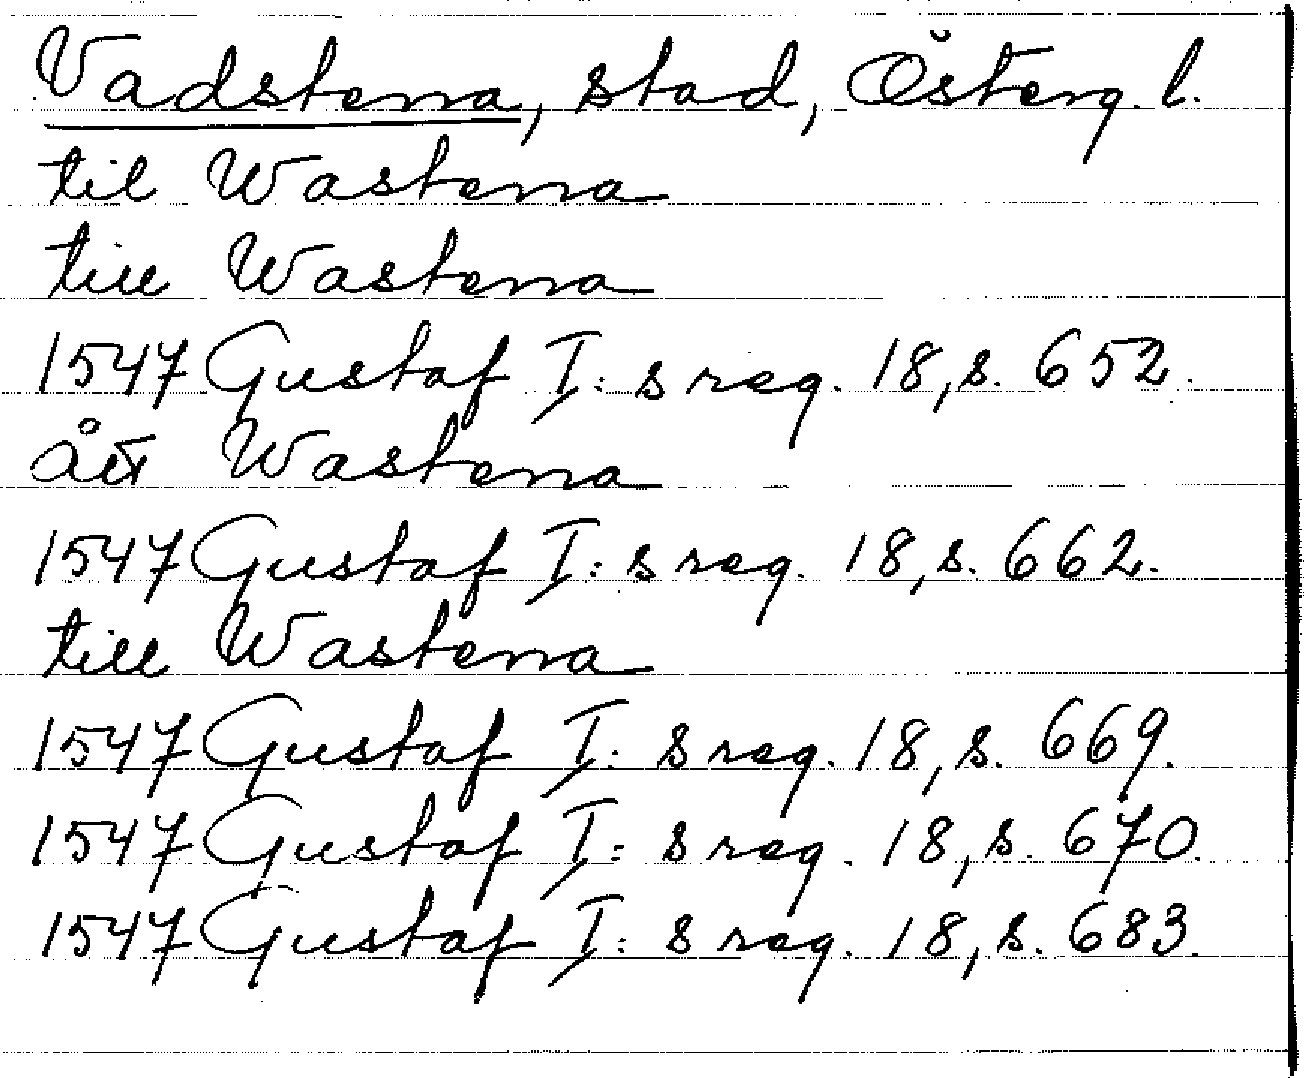 Vadstena, stad, Österg. l.
til Wastena
till Wastena
1547 Gustaf I: s reg. 18, s. 652.
ått Wastena
1547 Gustaf I: s reg. 18, s. 662.
till Wastena
1547 Gustaf I: s reg. 18, s. 669.
1547 Gustaf I: s reg. 18, s. 670.
1547 Gustaf I: s reg. 18, s. 683.